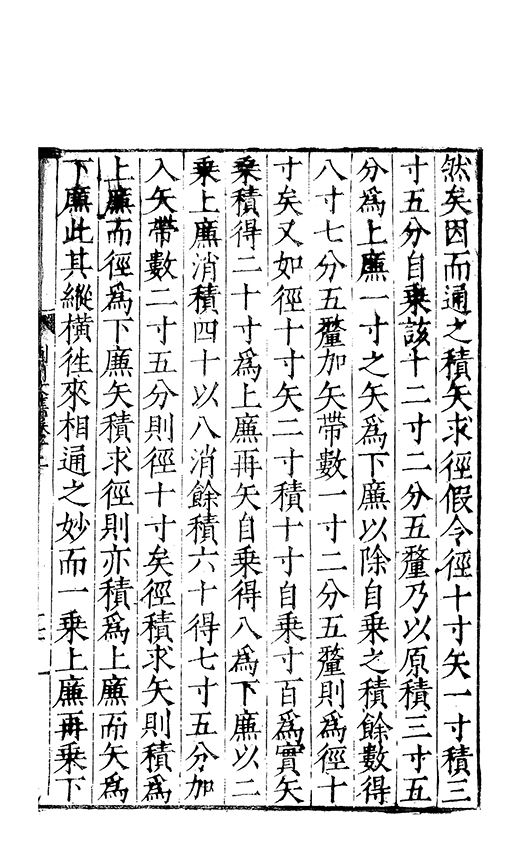 然矣因而通之積矢求徑假令徑十寸矢一寸積三
寸五分自乘該十二寸二分五釐乃以原積三寸五
分爲上廉一寸之矢爲下廉以除自乘之積餘數得
八寸七分五釐加矢帶數一寸二分五釐則爲徑十
寸矣又如徑十寸矢二寸積十寸自乘寸百爲實矢
乘積得二十寸爲上廉再矢自乘得八爲下廉以二
乘上廉消積四十以八消餘積六十得七寸五分加
入矢帶數二寸五分則徑十寸矣徑積求矢則積爲
上廉而徑爲下廉矢積求徑則亦積爲上廉而矢爲
下廉此其縱橫徃來相通之妙而一乘上廉再乘下